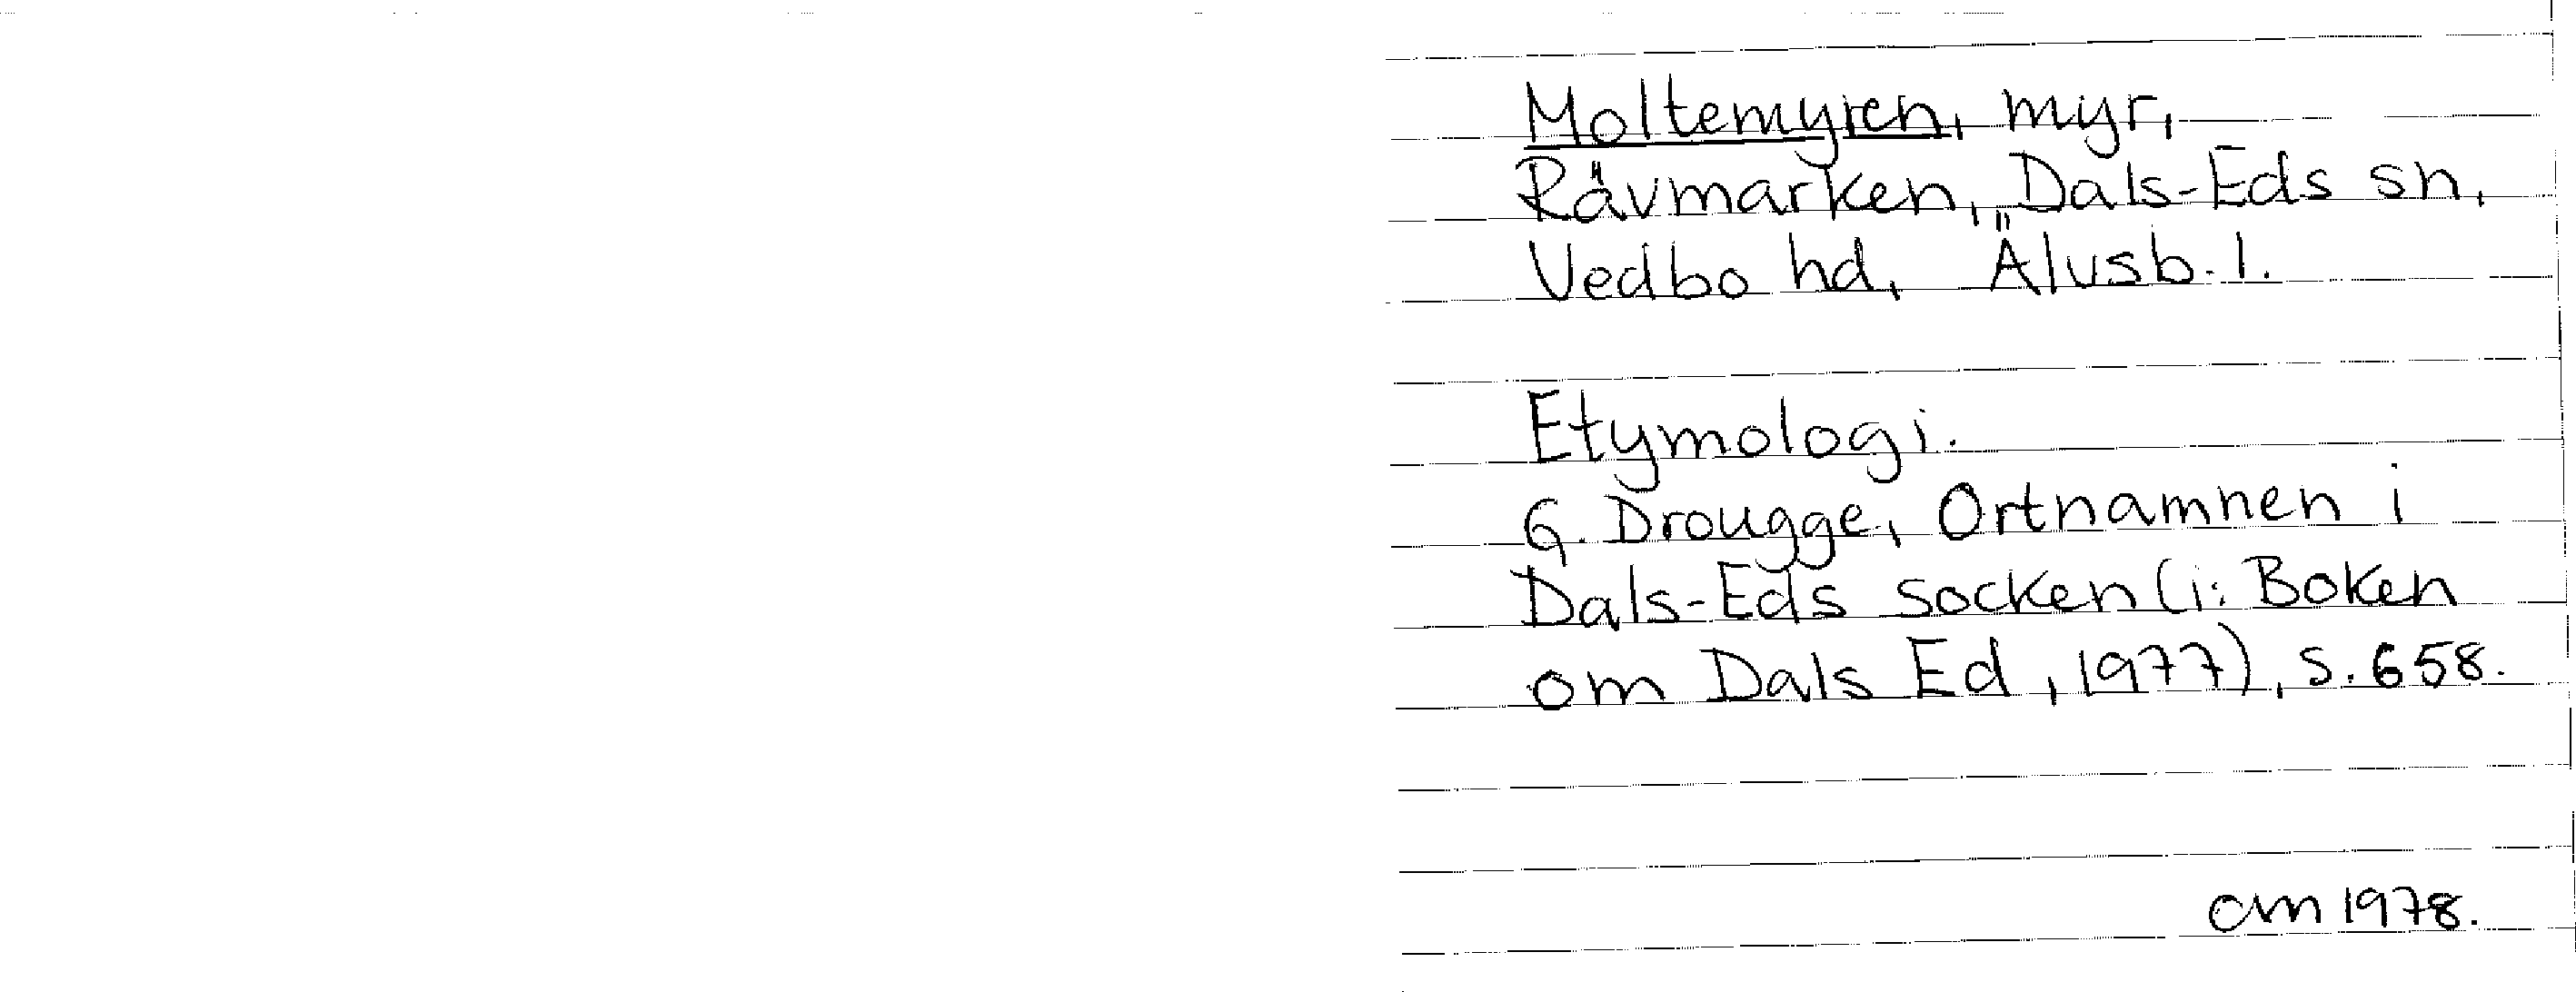 Moltemyren, myr,
Rävmarken, Dals-Eds sn,
Vedbo hd, Älvsb. l.
Etymologi.
G. Drougge, Ortnamnen i
Dals-Eds socken (i: Boken
om Dals Ed, 1977), s. 658.
am 1978.